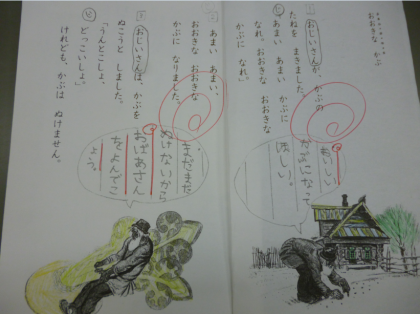 おおきな かぶ
おじいさんが、かぶの
たねを まきました。
「あまい あまい かぶに
なれ。おおきな おおきな
かぶに なれ。」
おいしい
かぶになって
ほしい。
あまい あまい、
おおきな おおきな
かぶに なりました。
おじいさんは、かぶを
ぬこうと しました。
「うんとこしょ、
どっこいしょ。」
けれども、かぶは ぬけません。
まだまだ
ぬけないから
おばあさん
をよんでこ
よう。